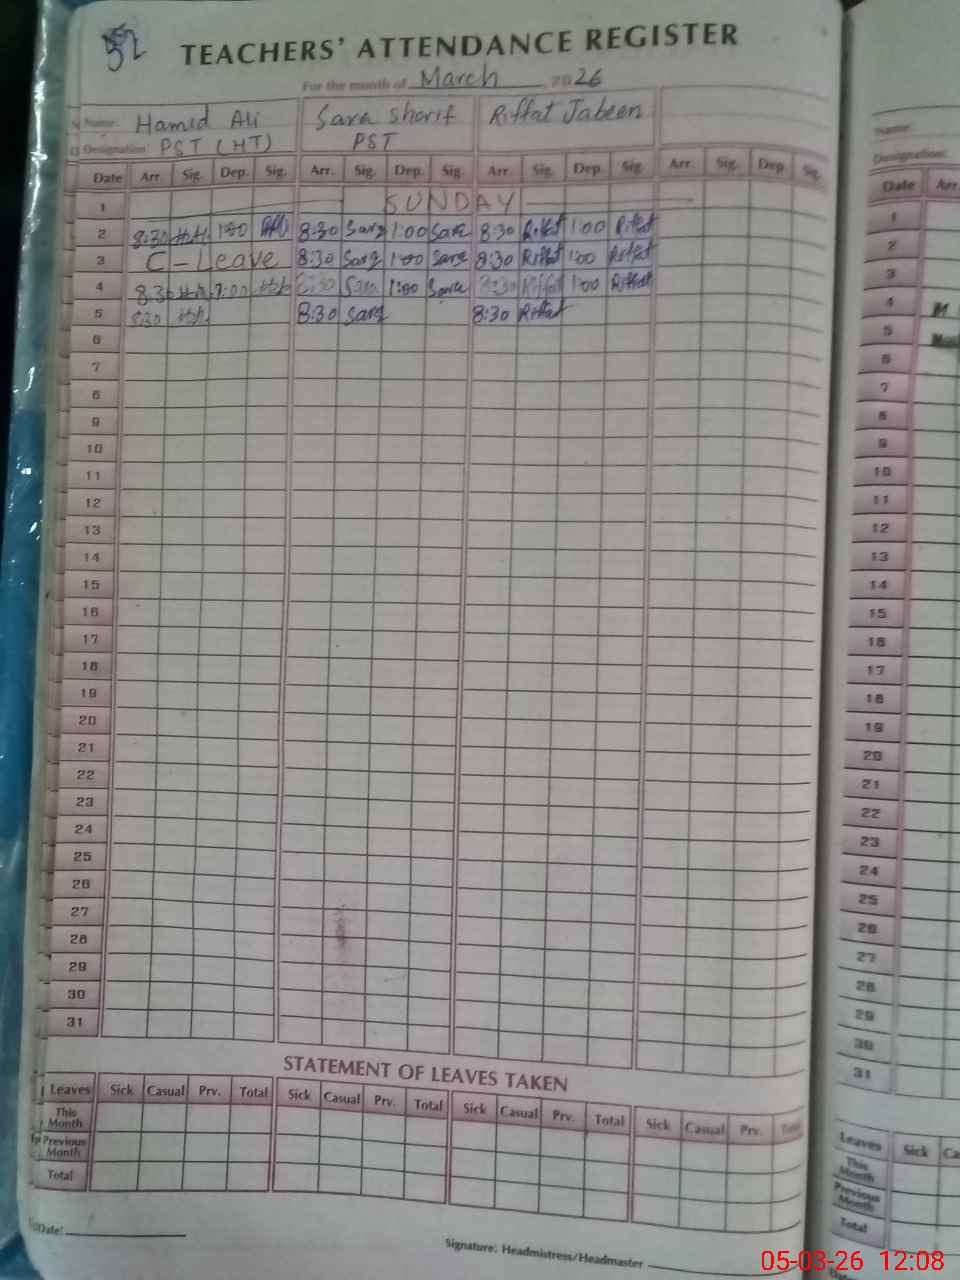 52
TEACHERS' ATTENDANCE REGISTER
For the month of March 2026
Name: Hamid Ali Sara Sharif Riffat Jabeen
Designation: PST (HT) PST
Date Arr. Sig. Dep. Sig. Arr. Sig. Dep. Sig. Arr. Sig. Dep. Sig. Arr. Sig. Dep. Sig.
1 SUNDAY
2 8:30 1:00 8:30 Sara 1:00 Sara 8:30 Riffat 1:00 Riffat
3 C-Leave 8:30 Sara 1:00 Sara 8:30 Riffat 1:00 Riffat
4 8:30 8:30 Sara 1:00 Sara 8:30 Riffat 1:00 Riffat
5 8:30 8:30 Sara 8:30 Riffat
6
7
8
9
10
11
12
13
14
15
16
17
18
19
20
21
22
23
24
25
26
27
28
29
30
31
STATEMENT OF LEAVES TAKEN
Leaves Sick Casual Prv. Total Sick Casual Prv. Total Sick Casual Prv. Total Sick Casual Prv. Total
This Month
Previous Month
Total
Date:
Signature: Headmistress/Headmaster
Name:
Designation:
Date Arr
1
2
3
4 M
5
6
7
8
9
10
11
12
13
14
15
16
17
18
19
20
21
22
23
24
25
26
27
28
29
30
31
Leaves Sick Ca
This Month
Previous Month
Total
05-03-26 12:08